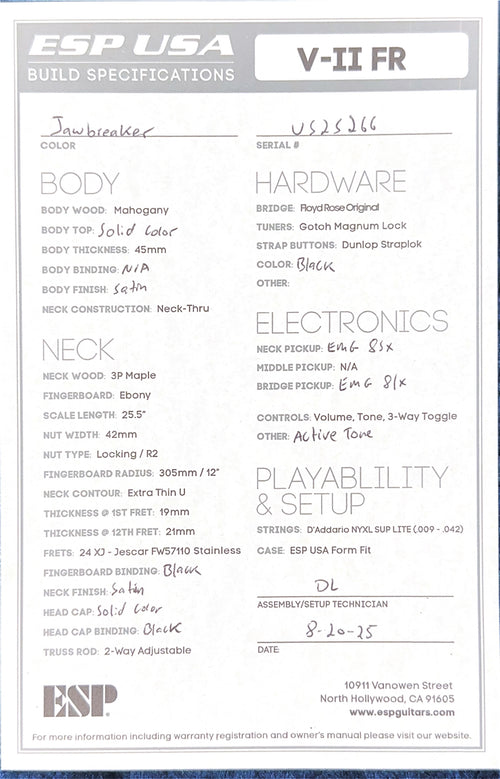 ESP USA
BUILD SPECIFICATIONS
V-II FR
Jawbreaker
COLOR
US25266
SERIAL #
BODY
BODY WOOD: Mahogany
BODY TOP: Solid Color
BODY THICKNESS: 45mm
BODY BINDING: N/A
BODY FINISH: Satin
NECK CONSTRUCTION: Neck-Thru
NECK
NECK WOOD: 3P Maple
FINGERBOARD: Ebony
SCALE LENGTH: 25.5"
NUT WIDTH: 42mm
NUT TYPE: Locking / R2
FINGERBOARD RADIUS: 305mm / 12"
NECK CONTOUR: Extra Thin U
THICKNESS @ 1ST FRET: 19mm
THICKNESS @ 12TH FRET: 21mm
FRETS: 24 XJ - Jescar FW57110 Stainless
FINGERBOARD BINDING: Black
NECK FINISH: Satin
HEAD CAP: Solid Color
HEAD CAP BINDING: Black
TRUSS ROD: 2-Way Adjustable
HARDWARE
BRIDGE: Floyd Rose Original
TUNERS: Gotoh Magnum Lock
STRAP BUTTONS: Dunlop Straplok
COLOR: Black
OTHER:
ELECTRONICS
NECK PICKUP: EMG 85X
MIDDLE PICKUP: N/A
BRIDGE PICKUP: EMG 81X
CONTROLS: Volume, Tone, 3-Way Toggle
OTHER: Active Tone
PLAYABLILITY
& SETUP
STRINGS: D'Addario NYXL SUP LITE (.009 - .042)
CASE: ESP USA Form Fit
DL
ASSEMBLY/SETUP TECHNICIAN
8-20-25
DATE:
ESP.
10911 Vanowen Street
North Hollywood, CA 91605
www.espguitars.com
For more information including warranty registration and owner's manual please visit our website.